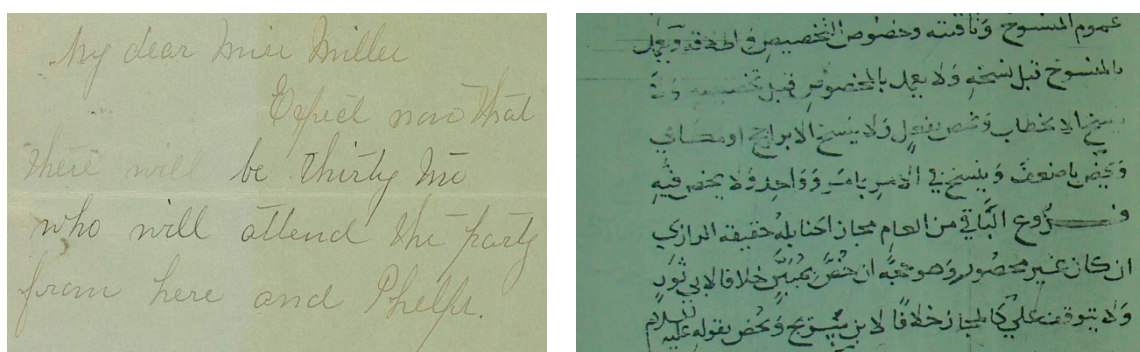 My dear Miss Miller
Expect now that
there will be thirty
who will attend the party
from here and Phelps.
عموم المنسوخ وثاقنته وخصوص التخصيص في
بالمنسوخ قبل نسخه ولا يعمل بالمخصوص قبل تخصيصه
ينسخ الا بخطاب ويخص بفعل ولا ينسخ الا براجح او مساوي
ويخص باضعف وينسخ في الامر بامر وواحد ولا يخص فيه
فروع الباقي من العام مجاز احنابله حقيقه الرازي
ان كان غير محصور وهو حجة ان خص بمبين خلافا لابي ثور
ولا يتوقف على كالمجاز خلافا لابن سريج ويخص بقوله عليه السلام